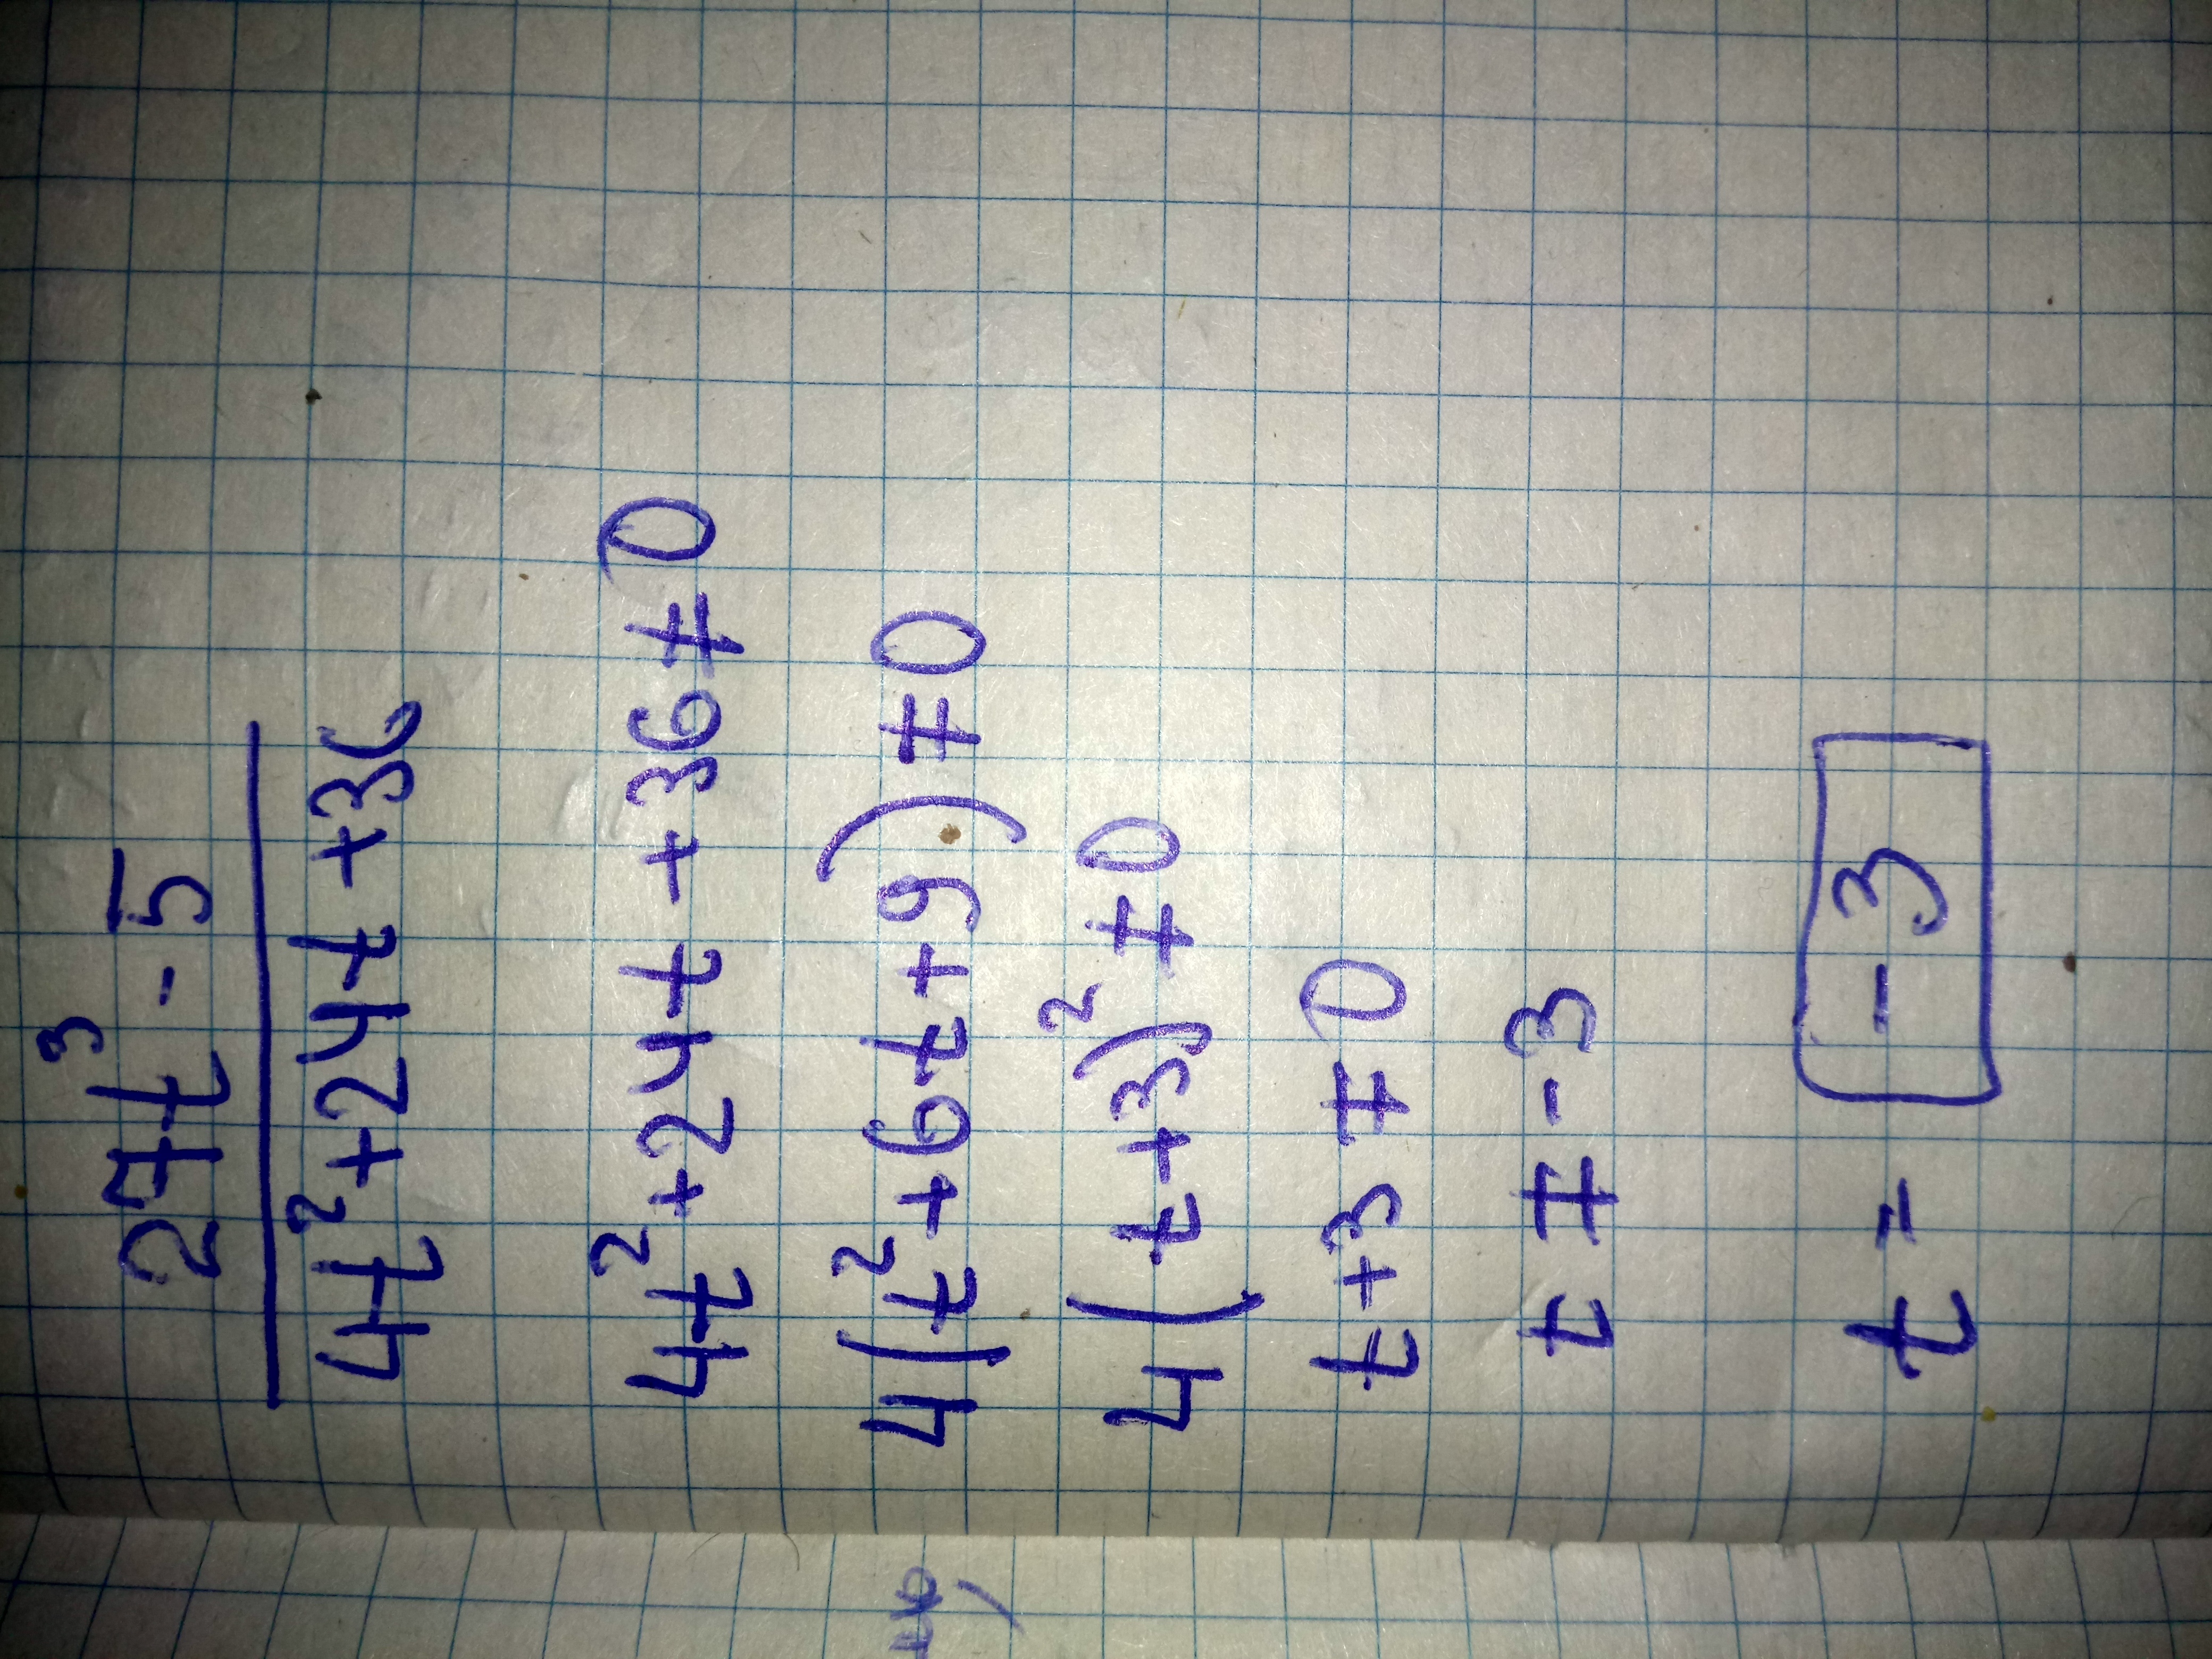 27t³ - 5
4t² + 24t + 36
4t² + 24t + 36 ≠ 0
4(t² + 6t + 9) ≠ 0
4(t + 3)² ≠ 0
t + 3 ≠ 0
t ≠ - 3
t = - 3